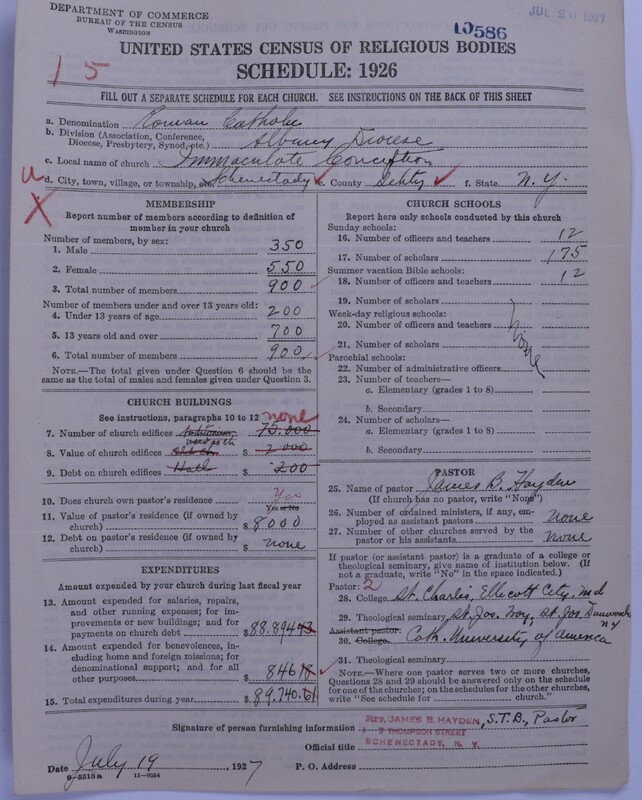 DEPARTMENT OF COMMERCE
BUREAU OF THE CENSUS
WASHINGTON
10586
JUL 20 1927
UNITED STATES CENSUS OF RELIGIOUS BODIES
SCHEDULE: 1926
15
FILL OUT A SEPARATE SCHEDULE FOR EACH CHURCH. SEE INSTRUCTIONS ON THE BACK OF THIS SHEET
a. Denomination Roman Catholic
b. Division (Association, Conference, Diocese, Presbytery, Synod, etc.) Albany Diocese
c. Local name of church Immaculate Conception
d. City, town, village, or township, etc. Schenectady e. County Schty f. State N.Y.
u
X
MEMBERSHIP
Report number of members according to definition of
member in your church
Number of members, by sex:
1. Male 350
2. Female 550
3. Total number of members 900
Number of members under and over 13 years old:
4. Under 13 years of age 200
5. 13 years old and over 700
6. Total number of members 900
NOTE.—The total given under Question 6 should be
same as the total of males and females given under Question 3.
CHURCH BUILDINGS
See instructions, paragraphs 10 to 12 none
7. Number of church edifices Auditorium 75.000
used as the
8. Value of church edifices church $ 2 000
9. Debt on church edifices Hall $ 200
10. Does church own pastor's residence Yes
Yes or No
11. Value of pastor's residence (if owned by
church) $ 8000
12. Debt on pastor's residence (if owned by
church) $ none
EXPENDITURES
Amount expended by your church during last fiscal year
13. Amount expended for salaries, repairs,
and other running expenses; for im-
provements or new buildings; and for
payments on church debt $ 88.894.43
14. Amount expended for benevolences, in-
cluding home and foreign missions; for
denominational support; and for all
other purposes $ 846.18
15. Total expenditures during year $ 89.740.61
CHURCH SCHOOLS
Report here only schools conducted by this church
Sunday schools:
16. Number of officers and teachers 12
17. Number of scholars 175
Summer vacation Bible schools:
18. Number of officers and teachers 12
19. Number of scholars
Week-day religious schools:
20. Number of officers and teachers
none
21. Number of scholars
Parochial schools:
22. Number of administrative officers
23. Number of teachers—
a. Elementary (grades 1 to 8)
b. Secondary
24. Number of scholars—
a. Elementary (grades 1 to 8)
b. Secondary
PASTOR
25. Name of pastor James B. Hayden
(If church has no pastor, write "None")
26. Number of ordained ministers, if any, em-
ployed as assistant pastors none
27. Number of other churches served by the
pastor or his assistants none
If pastor (or assistant pastor) is a graduate of a college or
theological seminary, give name of institution below. (If
not a graduate, write "No" in the space indicated.)
Pastor: 2
28. College St. Charles, Ellicott City, Md
29. Theological seminary St. Jos. Troy, St. Jos. Dunwoodie
N Y
Assistant pastor:
30. College Cath. University of America
31. Theological seminary
NOTE.—Where one pastor serves two or more churches,
Questions 28 and 29 should be answered only on the schedule
for one of the churches; on the schedules for the other churches,
write "See schedule for church."
Signature of person furnishing information REV. JAMES B. HAYDEN, S.T.B., Pastor
7 THOMPSON STREET
Official title SCHENECTADY, N. Y.
Date July 19, 1927 P. O. Address
8-5518a 11-9054